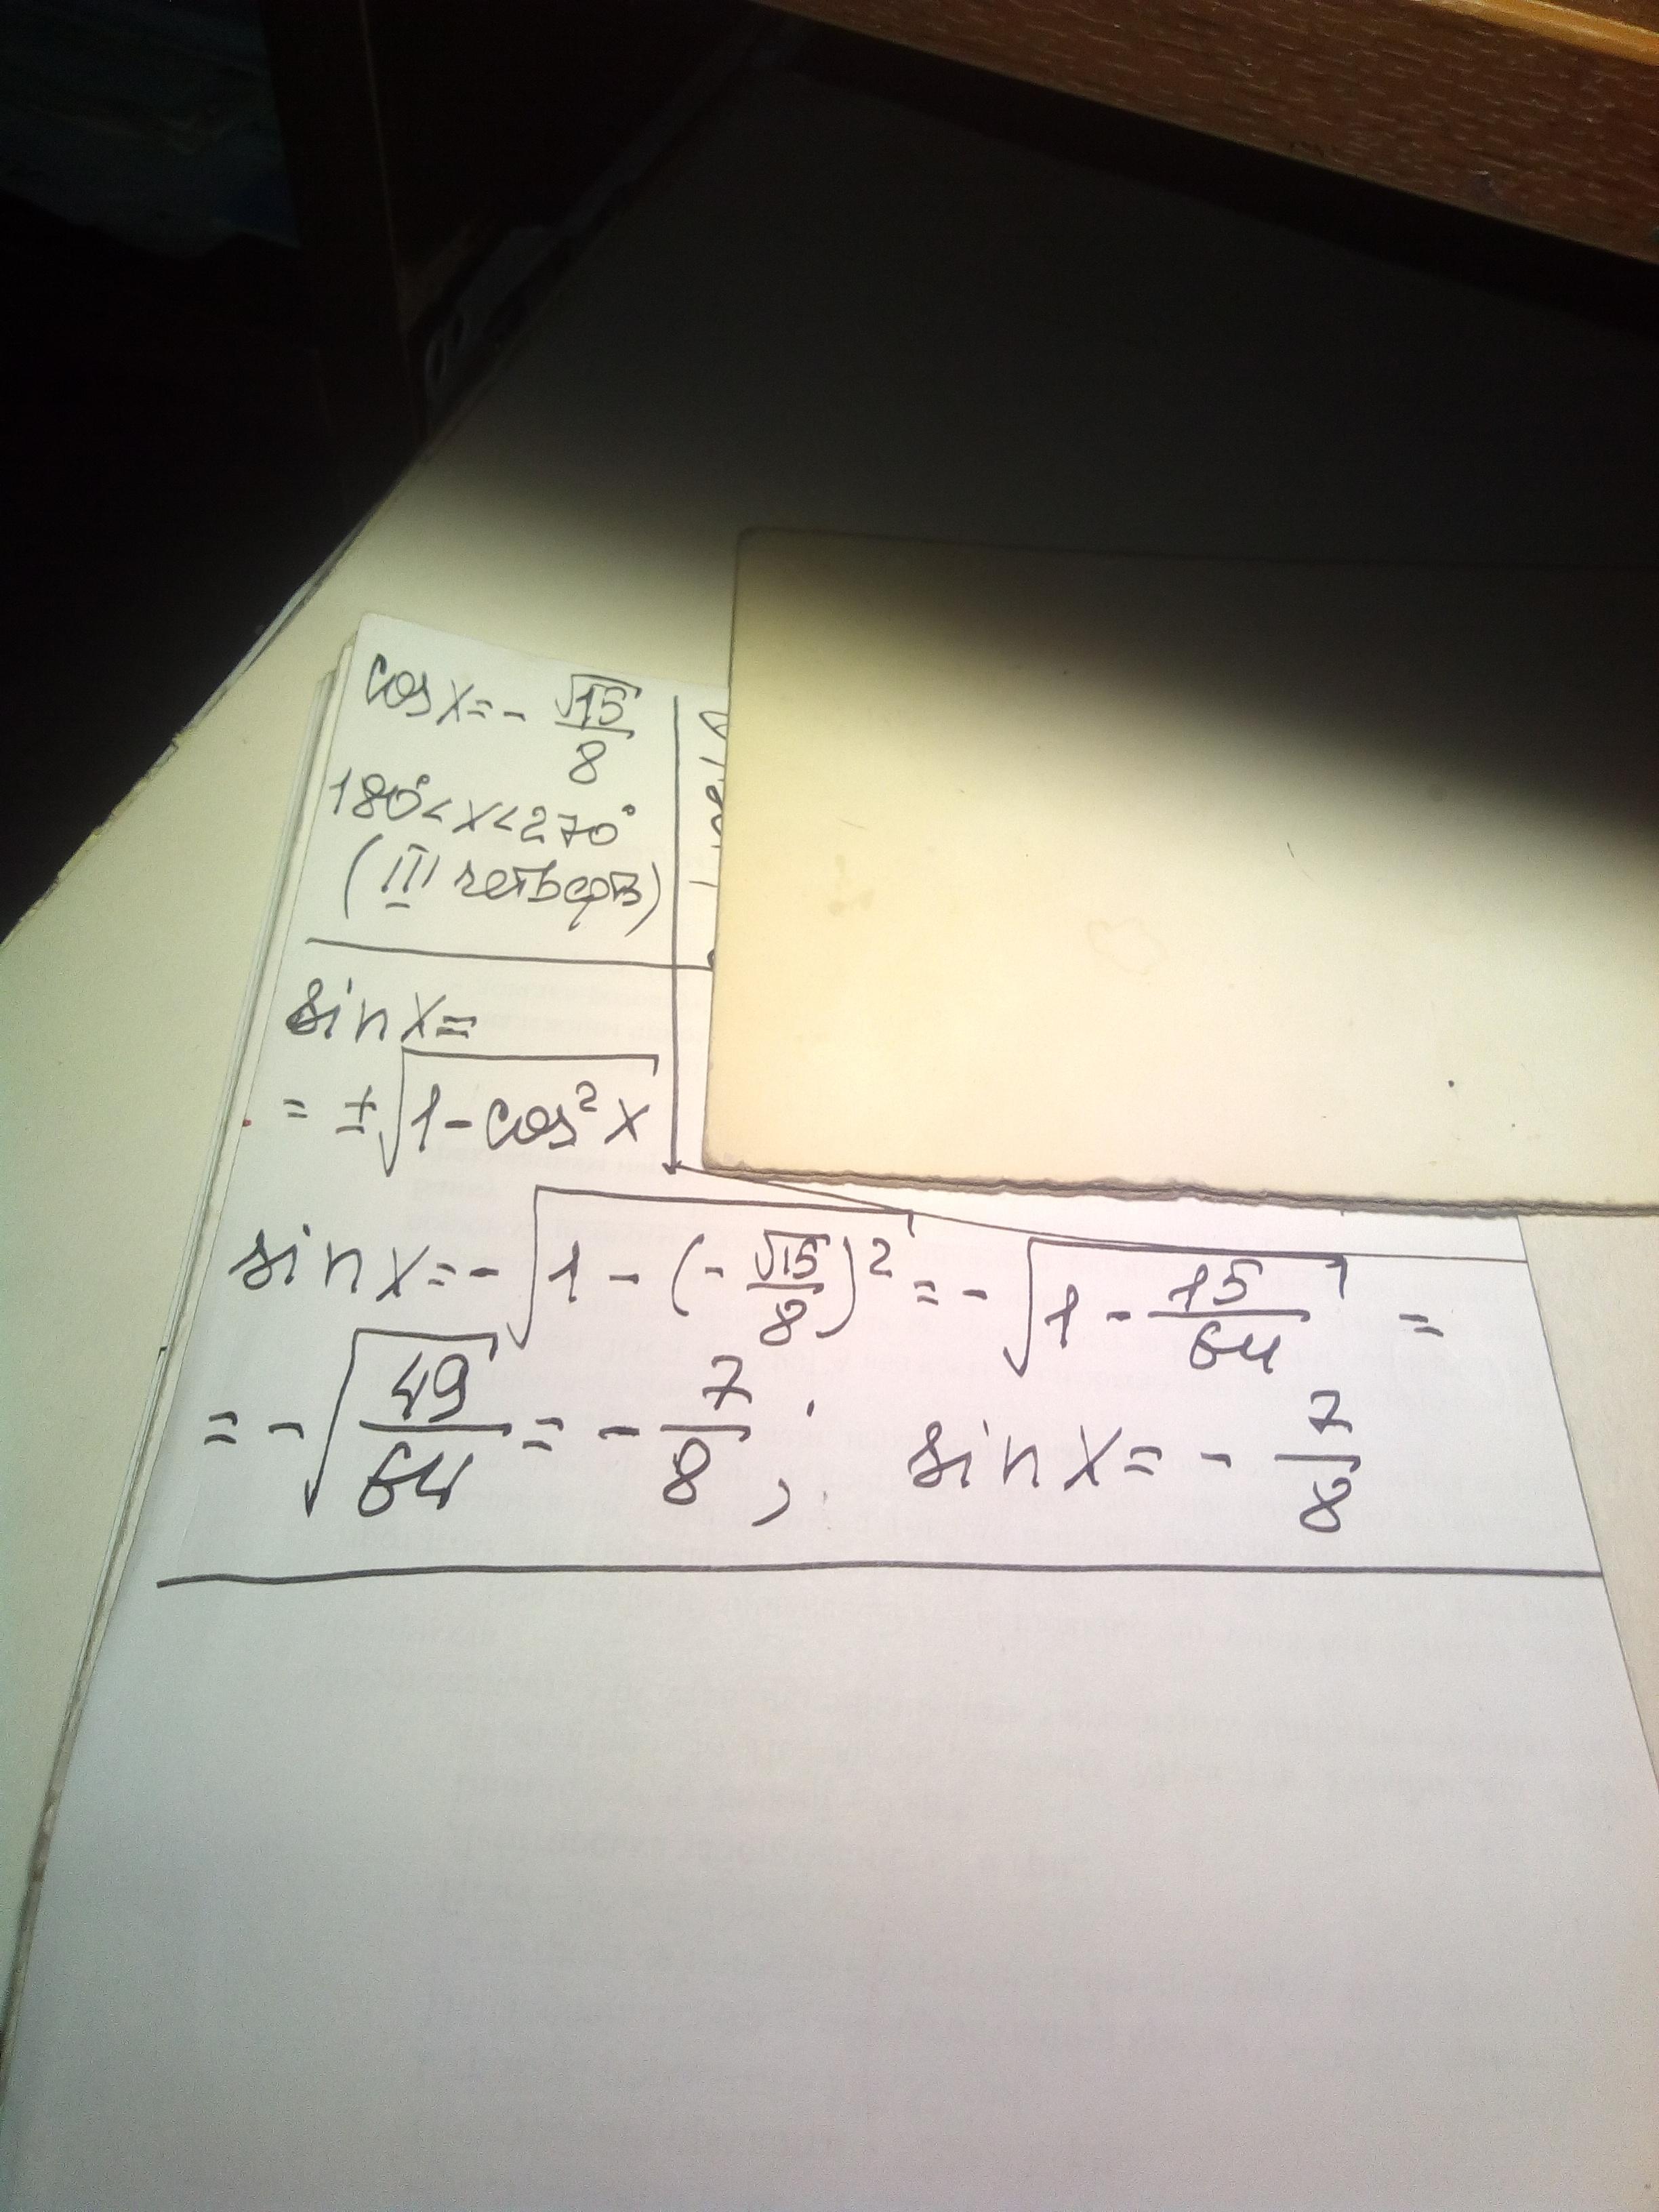 cos x = - √15/8
180° < x < 270°
(III четверть)
sin x =
= ±√(1 - cos² x)
sin x = - √(1 - (- √15/8)²) = - √(1 - 15/64) =
= - √(49/64) = - 7/8 ; sin x = - 7/8